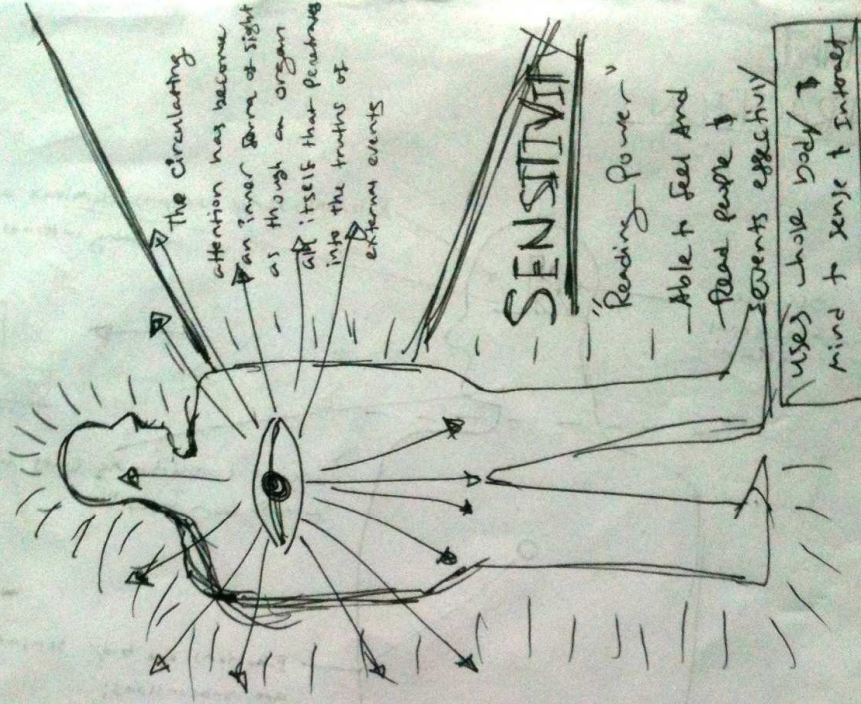 The circulating
attention has become
an inner sense of sight
as though an organ
itself that penetrates
into the truths of
external events
SENSITIVIT
"Reading Power"
- Able to feel And
- Read people &
events effectivly
uses whole body &
mind to sense & Interact